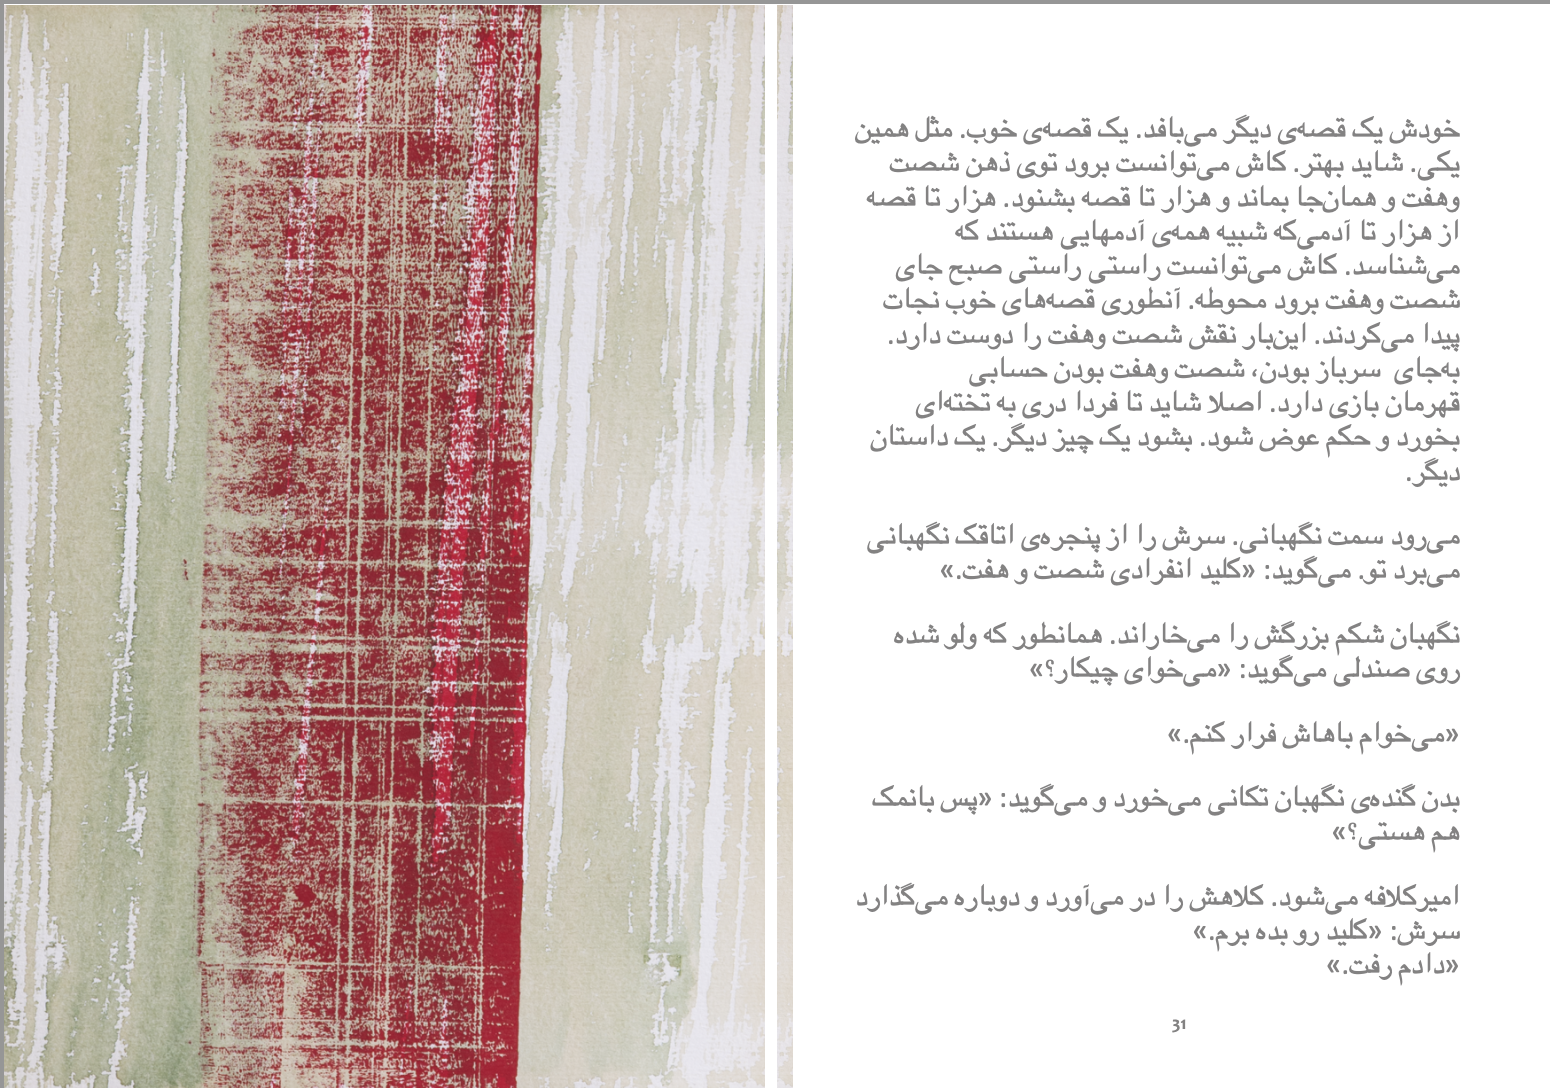 خودش یک قصه‌ی دیگر می‌بافد. یک قصه‌ی خوب. مثل همین
یکی. شاید بهتر. کاش می‌توانست برود توی ذهن شصت
وهفت و همان‌جا بماند و هزار تا قصه بشنود. هزار تا قصه
از هزار تا آدمی‌که شبیه همه‌ی آدمهایی هستند که
می‌شناسد. کاش می‌توانست راستی راستی صبح جای
شصت وهفت برود محوطه. آنطوری قصه‌های خوب نجات
پیدا می‌کردند. این‌بار نقش شصت وهفت را دوست دارد.
به‌جای سرباز بودن، شصت وهفت بودن حسابی
قهرمان بازی دارد. اصلا شاید تا فردا دری به تخته‌ای
بخورد و حکم عوض شود. بشود یک چیز دیگر. یک داستان
دیگر.
می‌رود سمت نگهبانی. سرش را از پنجره‌ی اتاقک نگهبانی
می‌برد تو. می‌گوید: «کلید انفرادی شصت و هفت.»
نگهبان شکم بزرگش را می‌خاراند. همانطور که ولو شده
روی صندلی می‌گوید: «می‌خوای چیکار؟»
«می‌خوام باهاش فرار کنم.»
بدن گنده‌ی نگهبان تکانی می‌خورد و می‌گوید: «پس بانمک
هم هستی؟»
امیرکلافه می‌شود. کلاهش را در می‌آورد و دوباره می‌گذارد
سرش: «کلید رو بده برم.»
«دادم رفت.»
31